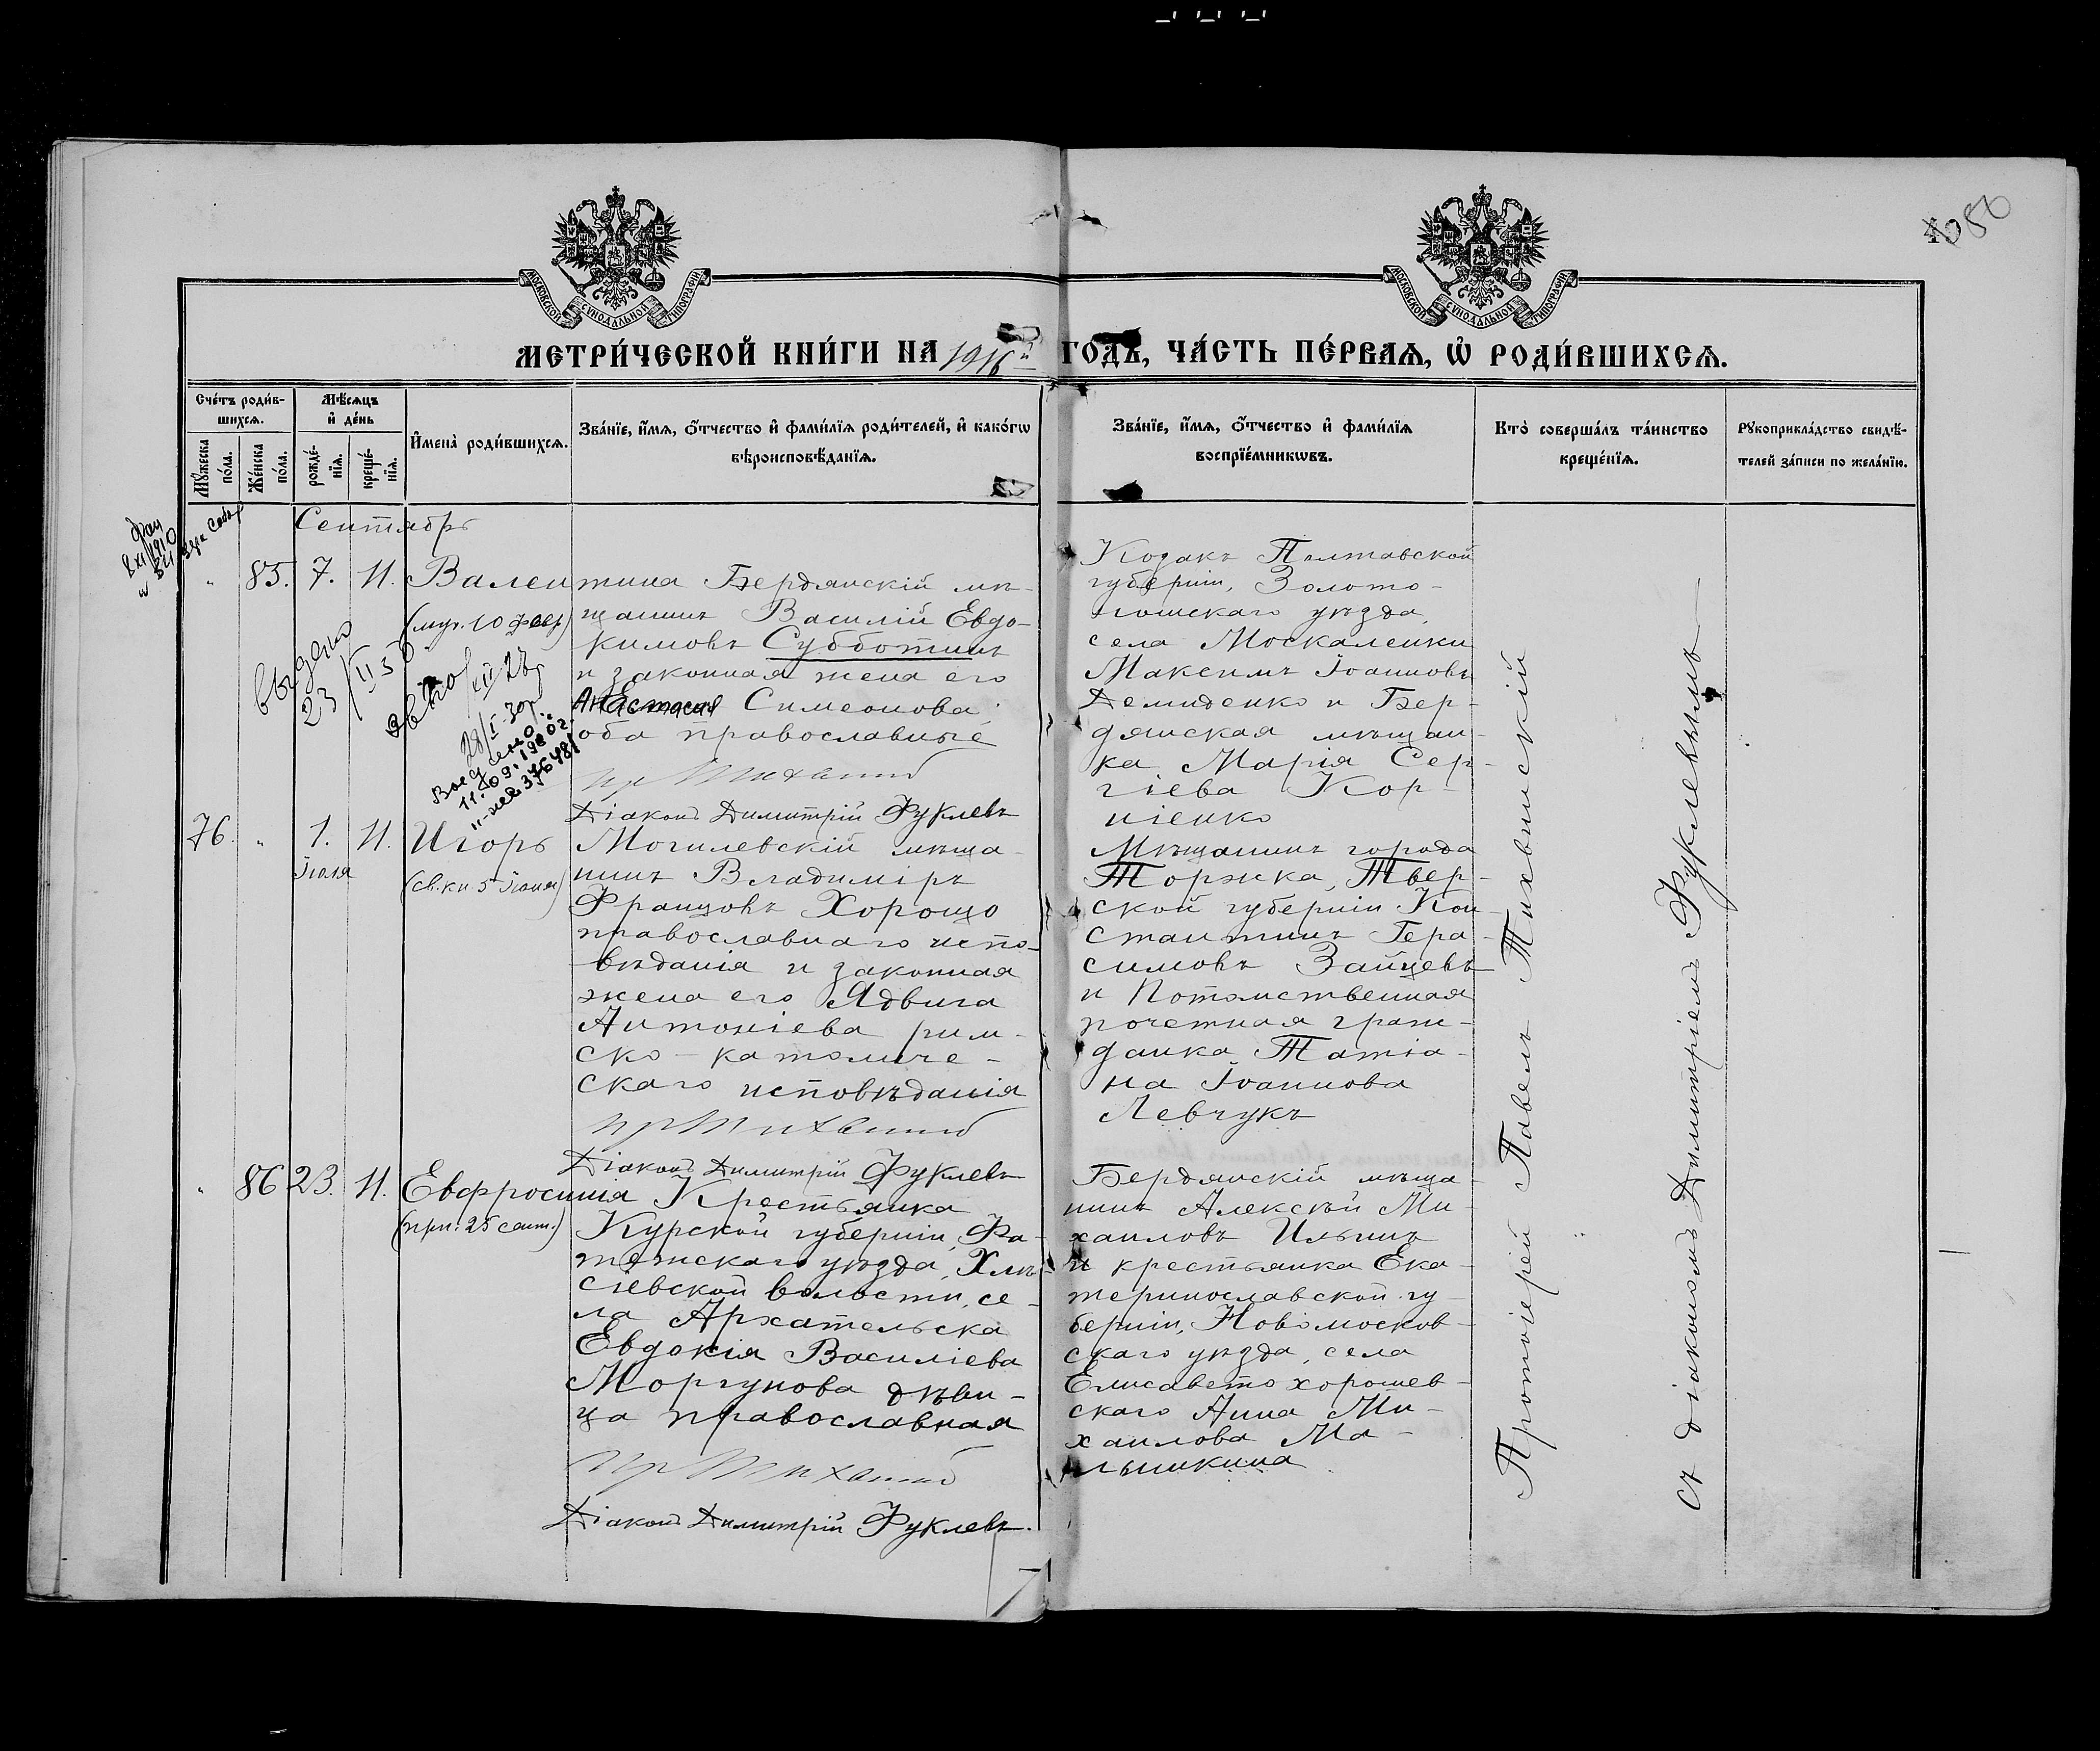 МОСКОВСКОЙ СѴНОДАЛЬНОЙ ТИПОГРАФІИ
МОСКОВСКОЙ СѴНОДАЛЬНОЙ ТИПОГРАФІИ
МЕТРИ́ЧЕСКОЙ КНИ́ГИ НА 1916й ГОДЪ, ЧА́СТЬ ПЕ́РВАЯ, Ѡ РОДИ́ВШИХСЯ.
Сче́тъ роди́в-
шихся.
Мꙋжеска
по́ла.
Же́нска
по́ла.
Мѣ́сяцъ
и҆ де́нь
рожде́-
нїя.
креще́-
нїя.
И҆мена̀ роди́вшихся.
Зва́нїе, и҆́мя, ѻ҆́тчество и҆ фами́лїя роди́телей, и҆ како́гѡ
вѣроисповѣ́данїя.
Зва́нїе, и҆́мя, ѻ҆́тчество и҆ фами́лїя
воспрїе́мникѡвъ.
Кто̀ соверша́лъ та́инство
креще́нїя.
Рꙋкоприкла́дство свидѣ́-
телей за́писи по жела́нїю.
Сентябрь
" 85. 7. 11. Валентина
(муч. 10 февр)
Бердянскій мѣ-
щанинъ Василій Евдо-
кимовъ Субботинъ
и законная жена его
Анастасия Симеонова;
оба православные
пр Тихвинскій
Діаконъ Димитрій Фуклевъ
Козакъ Полтавской
губерніи, Золото-
ношскаго уѣзда,
села Москаленки
Максимъ Іоанновъ
Демиденко и Бер-
дянская мѣщан-
ка Марія Сер-
гіева Кор-
ніенко
выдано
23/II 5
11.09.1980г.
76. " 1. 11. Игорь
Іюля
(св. кн. 5 Іюня)
Могилевскій мѣща-
нинъ Владиміръ
Францовъ Хорощо
православнаго испо-
вѣданія и законная
жена его Ядвига
Антоніева рим-
ско-католиче-
скаго исповѣданія
пр Тихвинскій
Діаконъ Димитрій Фуклевъ
Мѣщанинъ города
Торжка, Твер-
ской губерніи Кон-
стантинъ Гера-
симовъ Зайцевъ
и Потомственная
почетная граж-
данка Татіа-
на Іоаннова
Левчукъ
" 86 23. 11. Евфросинія
(прп. 25 сент.)
Крестьянка
Курской губерніи, Фа-
тежскаго уѣзда, Хмѣ-
сіевской волости, се-
ла Архательска
Евдокія Василіева
Моргунова дѣви-
ца православная
пр Тихвинскій
Діаконъ Димитрій Фуклевъ.
Бердянскій мѣща-
нинъ Алексѣй Ми-
хаиловъ Ильинъ
и крестьянка Ека-
теринославской гу-
берніи, Новомосков-
скаго уѣзда, села
Елисавето хорошев-
скаго Анна Ми-
хаилова Ма-
лышкина
Протоіерей Павелъ Тихвинскій
съ діакономъ Димитріемъ Фуклевымъ